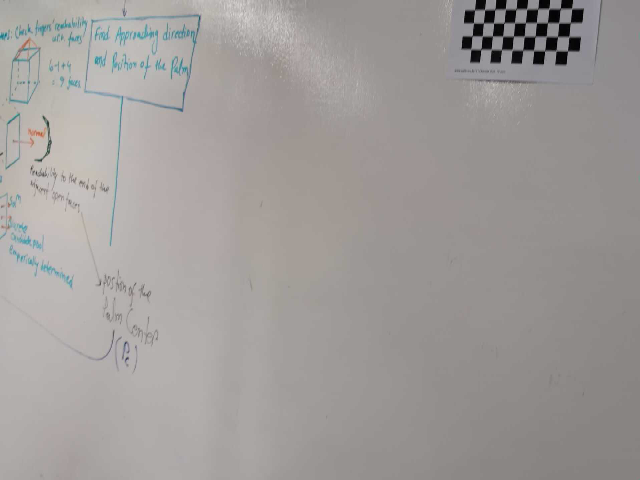 Check fingers' reachability
w.r.t. faces
6-1+4
= 9 faces
Find Approaching direction
and Position of the Palm
Normal
Reachability to the end of the
open faces
Discrete
Empirically determined
position of the
Palm Center
(Pc)